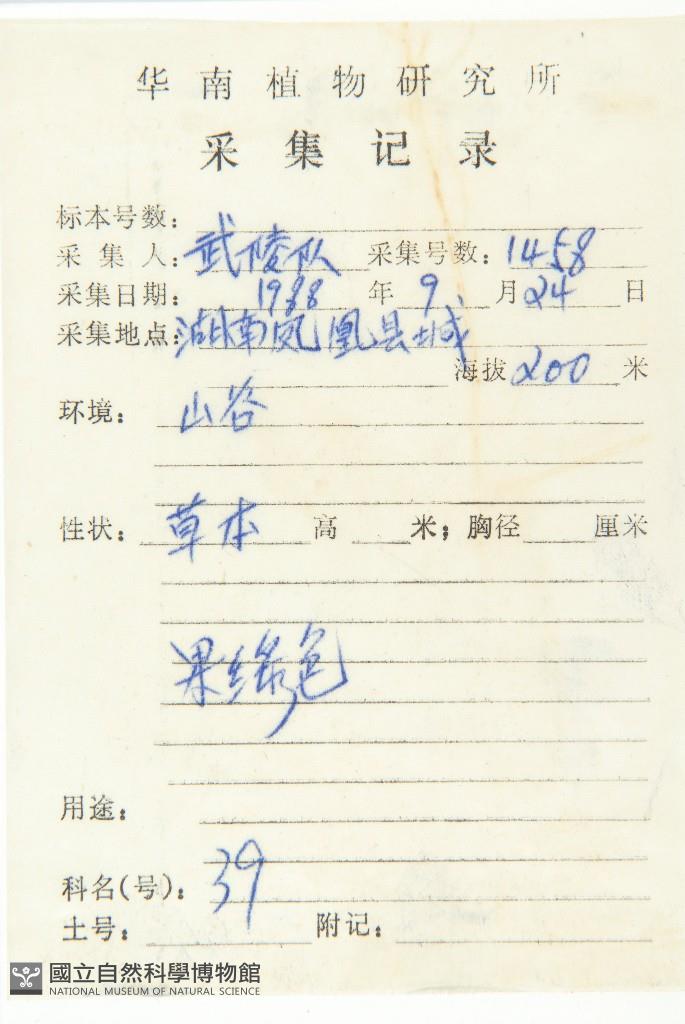 华南植物研究所
采集记录
标本号数:
采集人: 武陵队 采集号数: 1458
采集日期: 1988 年 9 月 24 日
采集地点: 湖南凤凰县城
海拔 200 米
环境: 山谷
性状: 草本 高 米; 胸径 厘米
果绿色
用途:
科名(号): 39
土号: 附记:
國立自然科學博物館
NATIONAL MUSEUM OF NATURAL SCIENCE